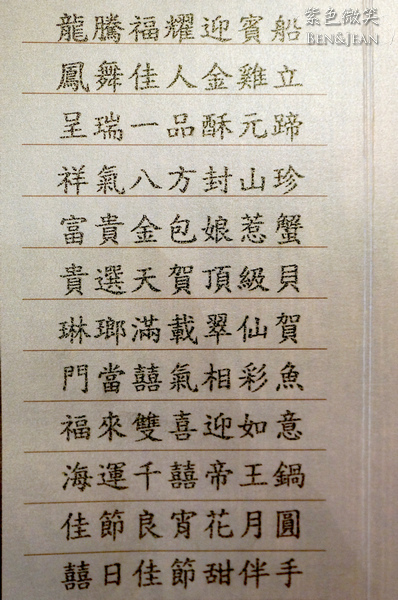 紫色微笑
BEN&JEAN
龍騰福耀迎賓船
鳳舞佳人金雞立
呈瑞一品酥元蹄
祥氣八方封山珍
富貴金包娘惹蟹
貴選天賀頂級貝
琳瑯滿載翠仙賀
門當囍氣相彩魚
福來雙喜迎如意
海運千囍帝王鍋
佳節良宵花月圓
囍日佳節甜伴手